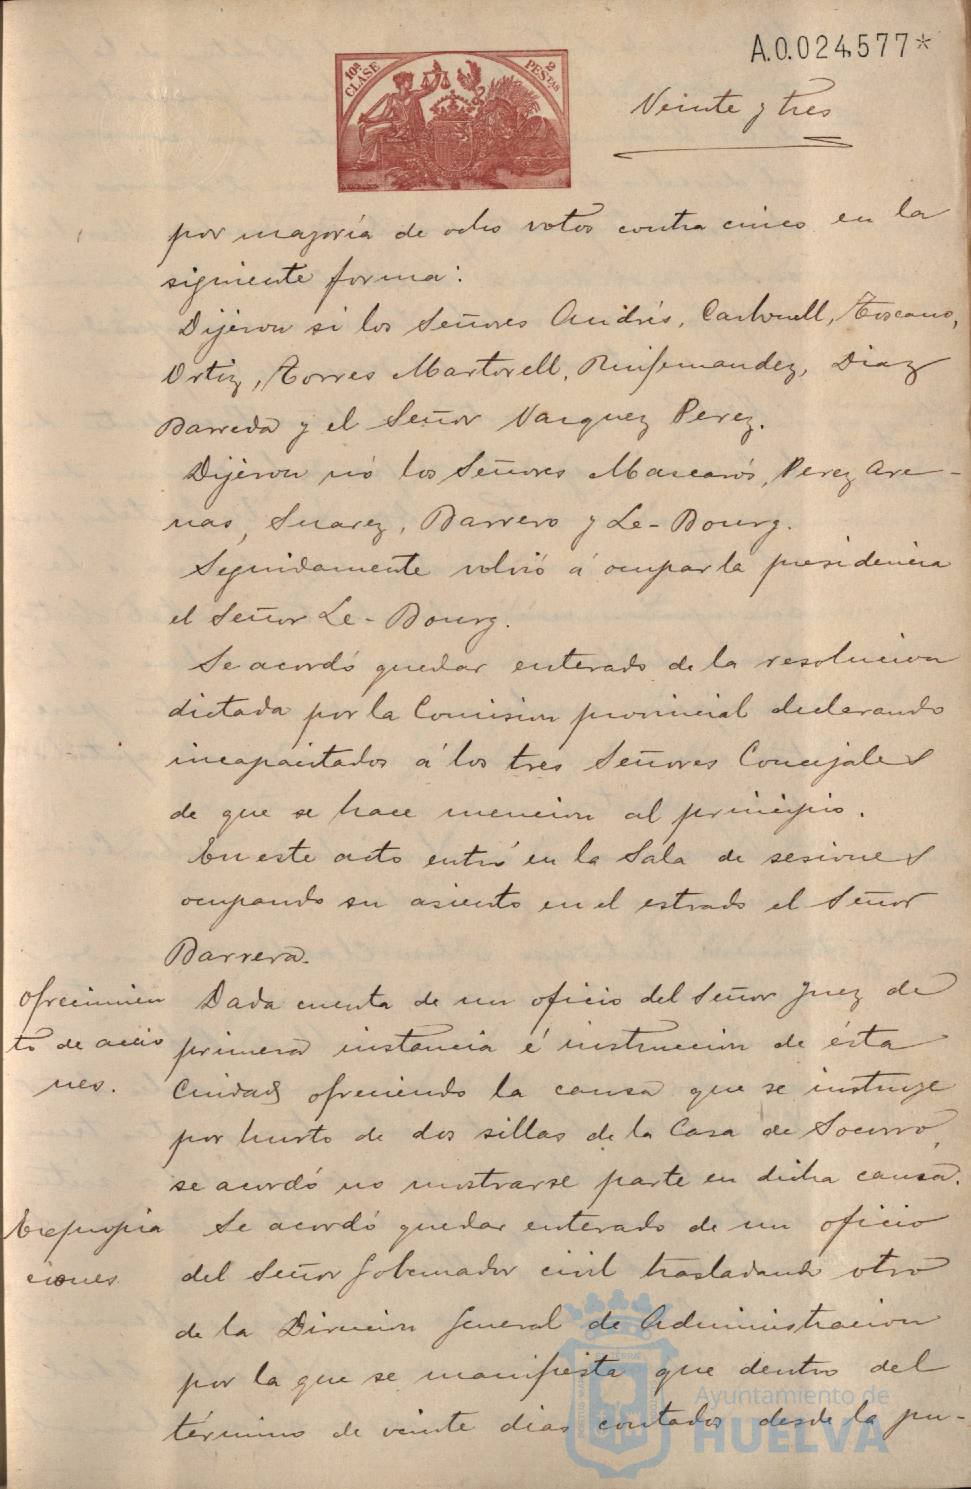 A.0.024,577*
10ª CLASE
2 PESTAS
Veinte y tres
por mayoría de ocho votos contra cinco en la
siguiente forma:
Dijeron si los Señores Andrés, Carbonell, Toscano,
Ortiz, Torres Martorell, Ruifernandez, Diaz
Barreda y el Señor Vazquez Perez.
Dijeron nó los Señores Mascarós, Perez Are-
nas, Suarez, Barrero y Le-Bourg.
Seguidamente volvió á ocupar la presidencia
el Señor Le-Bourg.
Se acordó quedar enterado de la resolucion
dictada por la Comision provincial declarando
incapacitados á los tres Señores Concejales
de que se hace mencion al principio.
En este acto entró en la Sala de sesiones
ocupando su asiento en el estrado el Señor
Barrera.
Ofrecimien
to de accio
nes.
Dada cuenta de un oficio del Señor Juez de
primera instancia é instruccion de ésta
Ciudad ofreciendo la causa que se instruye
por hurto de dos sillas de la Casa de Socorro,
se acordó no mostrarse parte en dicha causa.
Expropia
ciones
Se acordó quedar enterado de un oficio
del Señor Gobernador civil trasladando otro
de la Direccion General de Administracion
por la que se manifiesta que dentro del
término de veinte dias contados desde la pu-
Ayuntamiento de
HUELVA